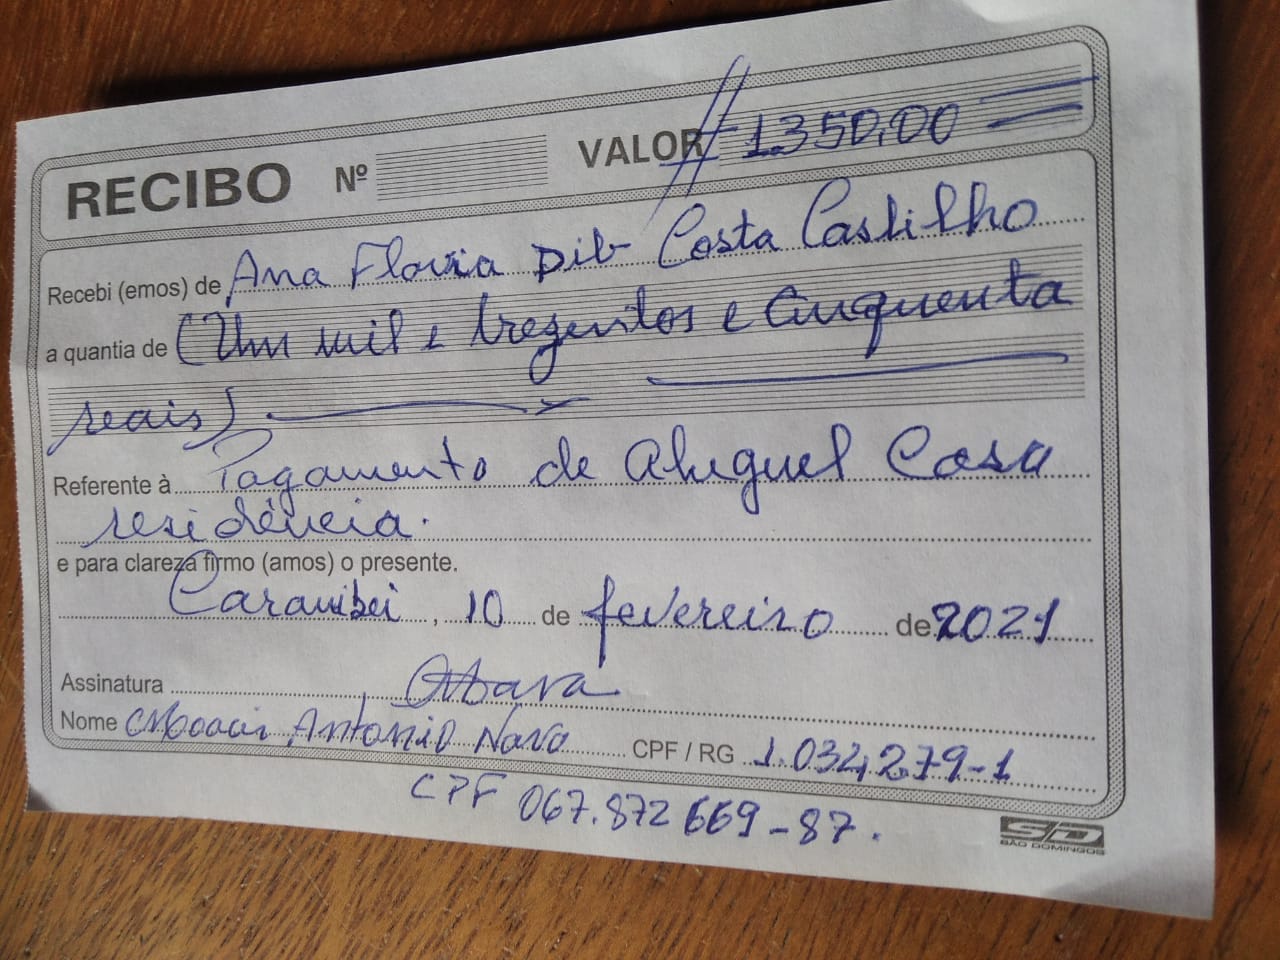 RECIBO Nº VALOR # 1.350,00
Recebi (emos) de Ana Flavia Dib Costa Castilho
a quantia de (Um mil e trezentos e Cinquenta
reais)
Referente à Pagamento de Aluguel Casa
residência.
e para clareza firmo (amos) o presente.
Carambei, 10 de fevereiro de 2021
Assinatura
Nome Moacir Antonio Nava CPF / RG 1.034.279-1
CPF 067.872 669-87.
SD
SÃO DOMINGOS